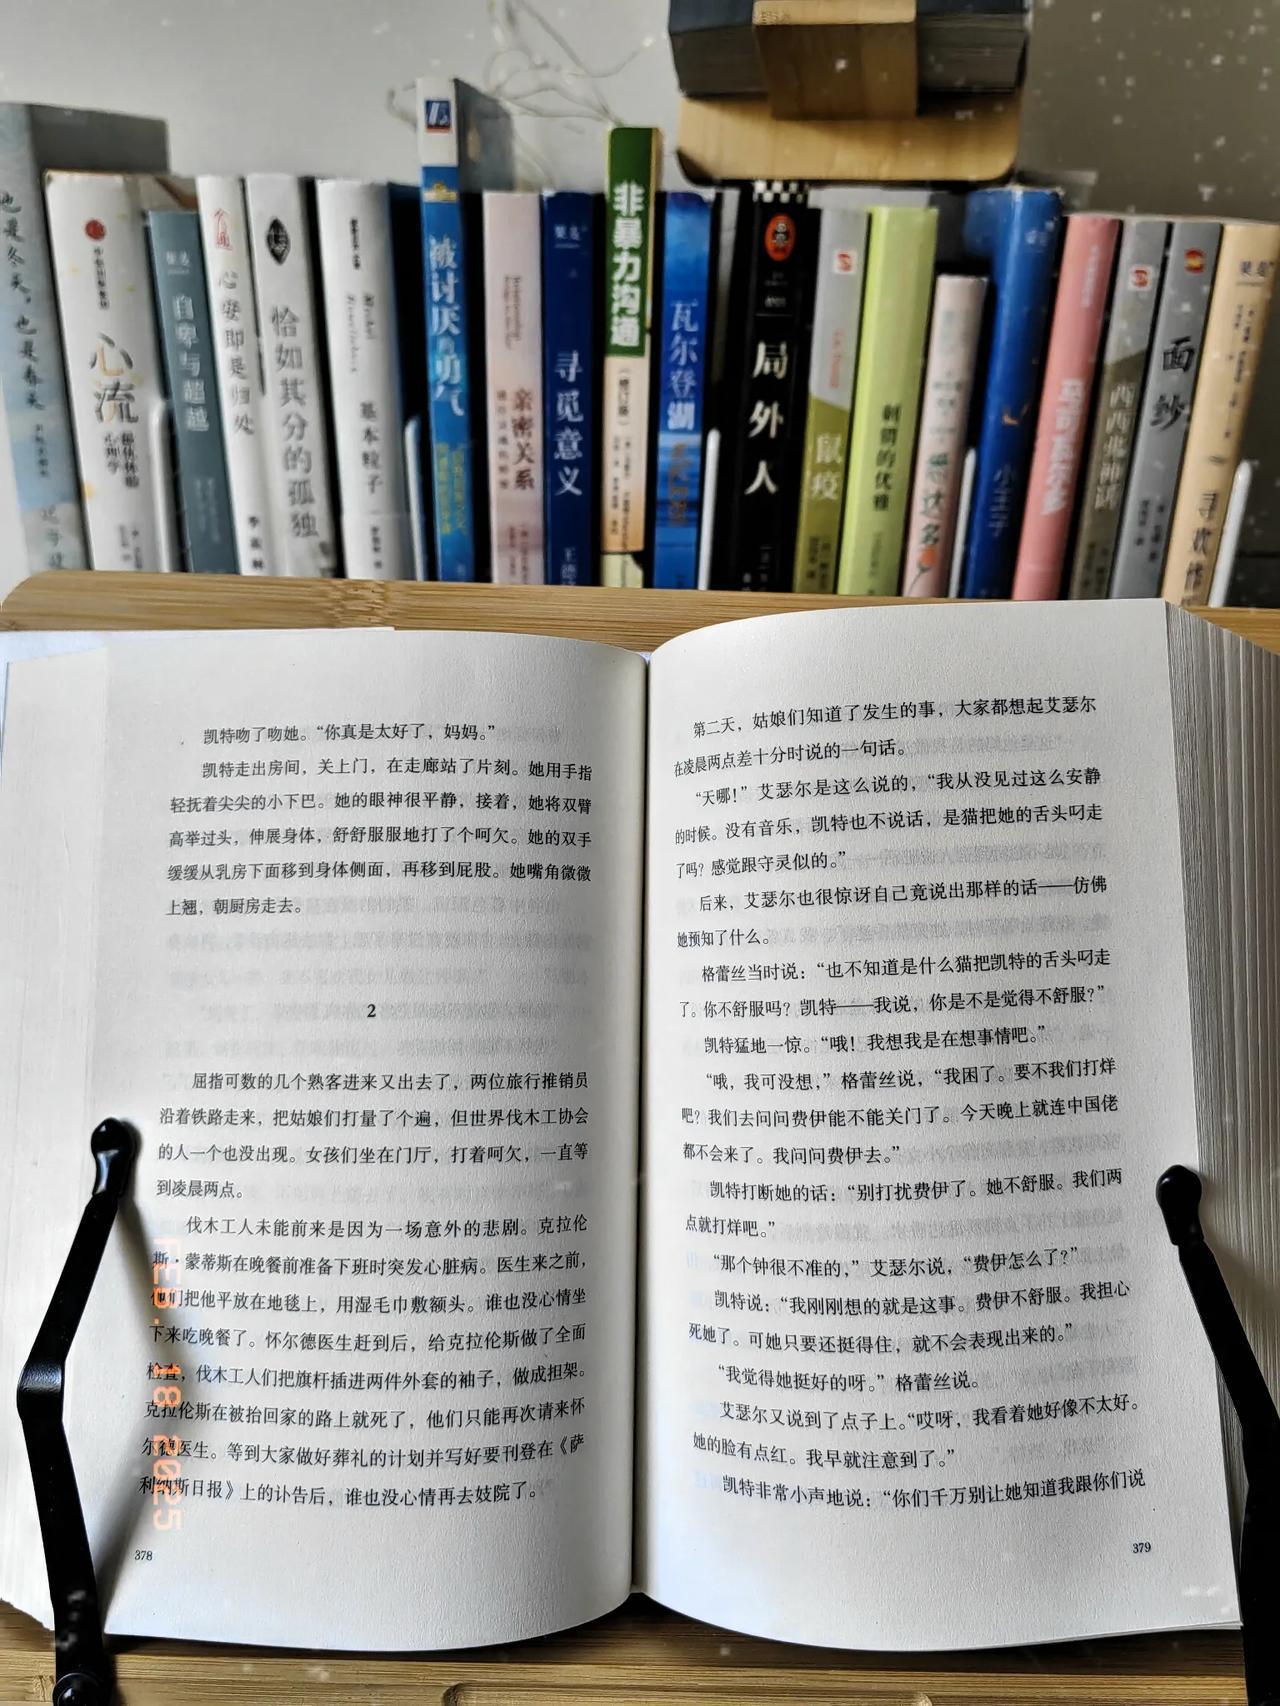 也是冬天,也是春天
心流
自卑与超越
心安即是归处
季羡林
恰如其分的孤独
基本粒子
被讨厌的勇气
亲密关系
寻觅意义
非暴力沟通
(修订版)
瓦尔登湖
局外人
鼠疫
刺猬的优雅
悉达多
小王子
马可瓦尔多
西西弗神话
面纱
寻欢作
凯特吻了吻她。“你真是太好了,妈妈。”
凯特走出房间,关上门,在走廊站了片刻。她用手指
轻抚着尖尖的小下巴。她的眼神很平静,接着,她将双臂
高举过头,伸展身体,舒舒服服地打了个呵欠。她的双手
缓缓从乳房下面移到身体侧面,再移到屁股。她嘴角微微
上翘,朝厨房走去。
2
屈指可数的几个熟客进来又出去了,两位旅行推销员
沿着铁路走来,把姑娘们打量了个遍,但世界伐木工协会
的人一个也没出现。女孩们坐在门厅,打着呵欠,一直等
到凌晨两点。
伐木工人未能前来是因为一场意外的悲剧。克拉伦
斯·蒙蒂斯在晚餐前准备下班时突发心脏病。医生来之前,
他们把他平放在地毯上,用湿毛巾敷额头。谁也没心情坐
下来吃晚餐了。怀尔德医生赶到后,给克拉伦斯做了全面
检查,伐木工人们把旗杆插进两件外套的袖子,做成担架。
克拉伦斯在被抬回家的路上就死了,他们只能再次请来怀
尔德医生。等到大家做好葬礼的计划并写好要刊登在《萨
利纳斯日报》上的讣告后,谁也没心情再去妓院了。
378
FEB. 18 2025
第二天,姑娘们知道了发生的事,大家都想起艾瑟尔
在凌晨两点差十分时说的一句话。
“天哪!”艾瑟尔是这么说的,“我从没见过这么安静
的时候。没有音乐,凯特也不说话,是猫把她的舌头叼走
了吗?感觉跟守灵似的。”
后来,艾瑟尔也很惊讶自己竟说出那样的话——仿佛
她预知了什么。
格蕾丝当时说:“也不知道是什么猫把凯特的舌头叼走
了。你不舒服吗?凯特——我说,你是不是觉得不舒服?”
凯特猛地一惊。“哦!我想我是在想事情吧。”
“哦,我可没想,”格蕾丝说,“我困了。要不我们打烊
吧?我们去问问费伊能不能关门了。今天晚上就连中国佬
都不会来了。我问问费伊去。”
凯特打断她的话:“别打扰费伊了。她不舒服。我们两
点就打烊吧。”
“那个钟很不准的,”艾瑟尔说,“费伊怎么了?”
凯特说:“我刚刚想的就是这事。费伊不舒服。我担心
死她了。可她只要还挺得住,就不会表现出来的。”
“我觉得她挺好的呀。”格蕾丝说。
艾瑟尔又说到了点子上。“哎呀,我看着她好像不太好。
她的脸有点红。我早就注意到了。”
凯特非常小声地说:“你们千万别让她知道我跟你们说
379